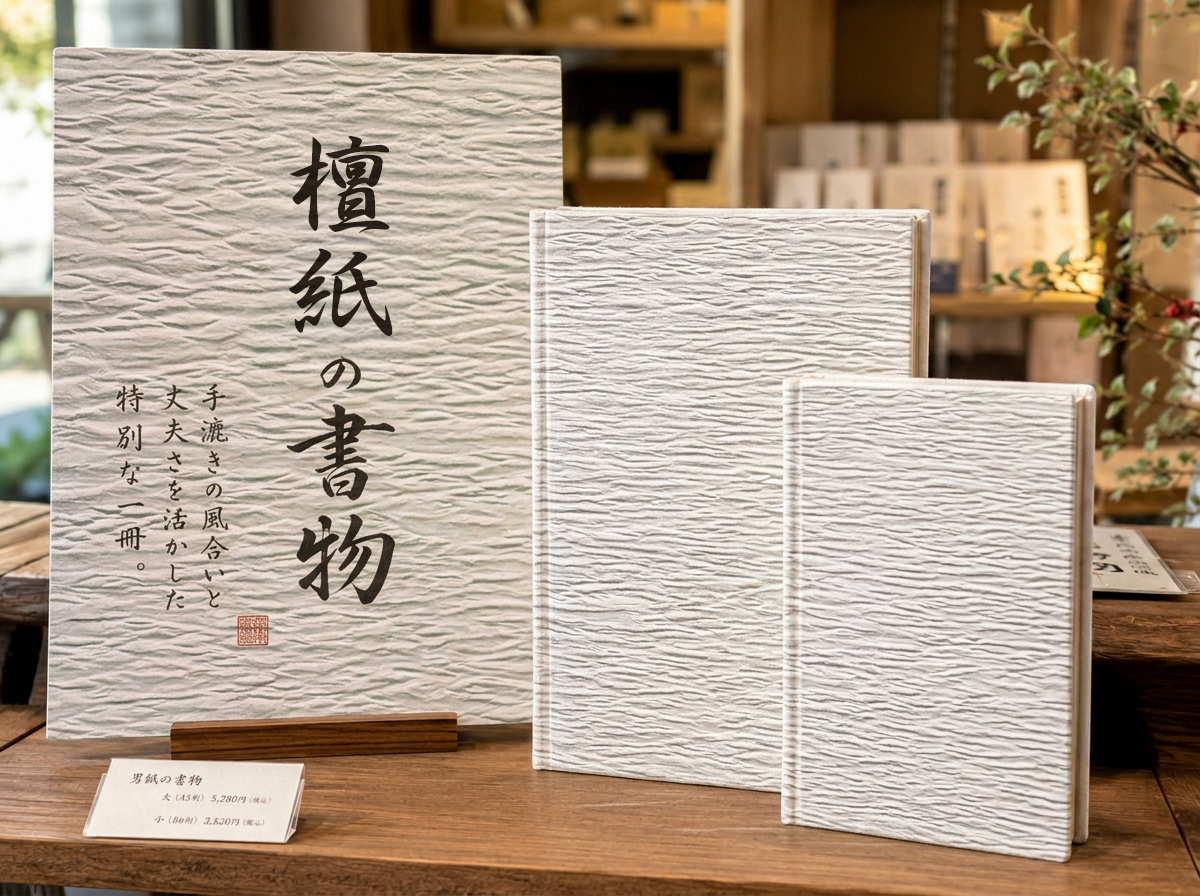 檀紙の書物
手漉きの風合いと
丈夫さを活かした
特別な一冊。
男紙の書物
大（A5判） 5,280円（税込）
小 円（税込）